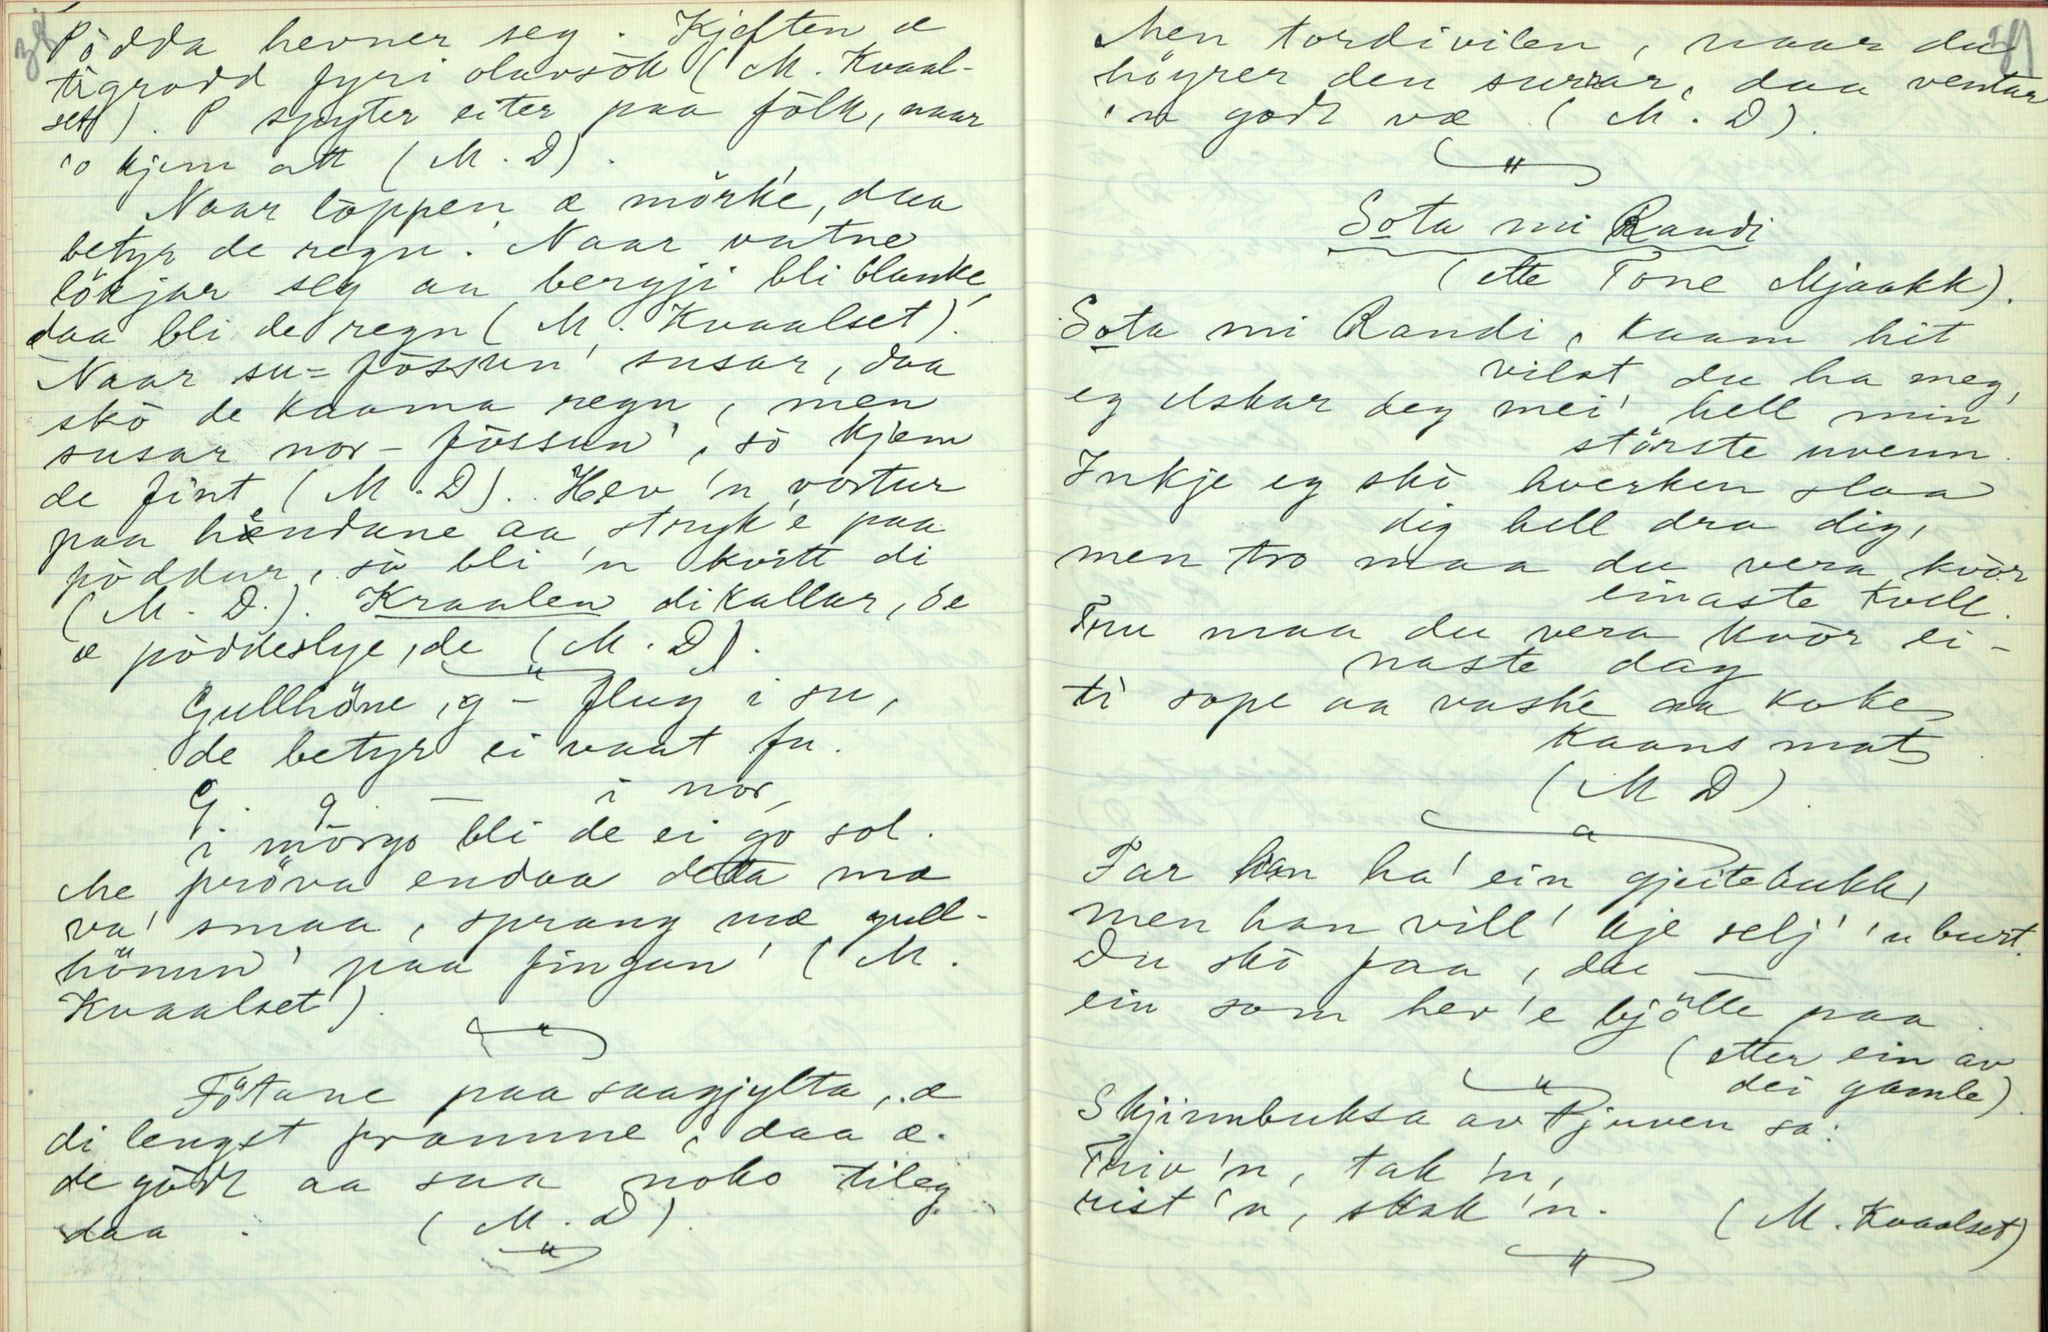 38
Pödda hevner seg. Kjeften æ
tigrodd fyri olavsök (M. Kvaal-
set). P spyter eiter paa fölk, naar
'o kjem att (M. D).
Naar löppen æ mörk'e, daa
betyr de regn. Naar vatne
lökjar seg aa bergji bli blanke,
daa bli de regn (M. Kvaalset).
Naar su-fössun' susar, daa
skö de kaama regn, men
susar nor-fössun', sö kjem
de fint (M. D). Hev 'n vortur
paa hendane aa stryk'e paa
pöddur, sö bli 'n kvitt di
(M. D.). Kraalen di kallar, de
æ pöddeslye, de (M. D).
Gullhöne, g - flug i su,
de betyr ei vaat fu.
G. g. — i nor,
i mörgo bli de ei go sol.
Me pröva endaa detta mæ
va' smaa, sprang mæ gull-
hönun' paa fingan' (M.
Kvaalset).
Fötane paa saagjylta, æ
di lengst framme, daa æ
de gödt aa saa noko tileg
daa. (M. D)
39
Men tordivilen, naar du
höyrer den surrar, daa ventar
'n godt væ (M. D).
Sota mi Randi
(ette Tone Mjaakk).
Sota mi Randi, kaam hit
vilst du ha meg,
eg elskar deg mei' hell min
störste uvenn.
Inkje eg skö hverken slaa
dig hell dra dig,
men tro maa du vera kvör
einaste kvell.
Tru maa du vera kvör ei-
naste dag
ti sope aa vaske aa koke
kaans mat
(M D).
Far han ha' ein gjeitebukk,
men han vill' kje selj' 'n burt.
Du skö faa, du —
ein som hev 'e kjötte paa.
(etter ein av
dei gamle)
Skjinnbuksa av Tjuven sa:
Triv 'n, tak 'n,
rist 'n, skak 'n.
(M. Kvaalset)